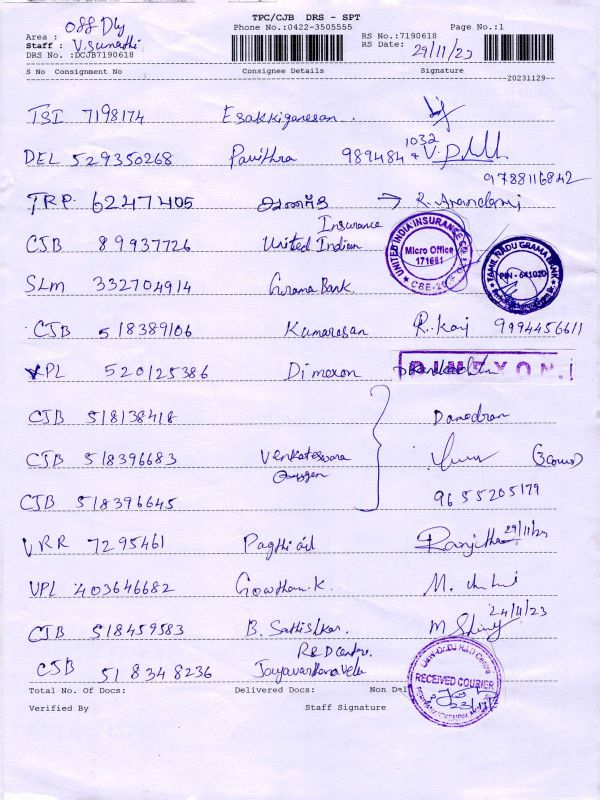 TPC/CJB DRS - SPT
Off Dly
Phone No.:0422-3505555
Page No.:1
Area :
RS No.:7190618
Staff : V. Sumathi
RS Date: 29/11/23
DRS No. :DCJB7190618
S No Consignment No Consignee Details Signature
--20231129--
TSI 7198174 Esakkiganesan.
DEL 529350268 Pavithra 989484 1032
9788116842
TRP. 6247405 → R. Anandami
CJB 89937726 United Indian Insurance
UNITED INDIA INSURANCE CO.
Micro Office
171681
CBE-
SLM 332704914 Grama Bank.
TAMIL NADU GRAMA BANK
PIN - 641020
CJB 518389106 Kumarasan R. Kaj 9994456611
VPL 520125386 Dimexon DIMEXON
CJB 518138418 Damodran
CJB 518396683 Venkateswara (3 Cons)
CJB 518396645 9655205179
VRR 7295461 Ranjitha 29/11/23
VPL 403646682 Gowtham. K. M.
24/11/23
CJB 518459583 B. Sathishkar. M
R&D Centre.
CJB 518348236 Jayavardhanavelu
R&D Centre
RECEIVED COURIER
Total No. Of Docs: Delivered Docs: Non Del
Verified By Staff Signature